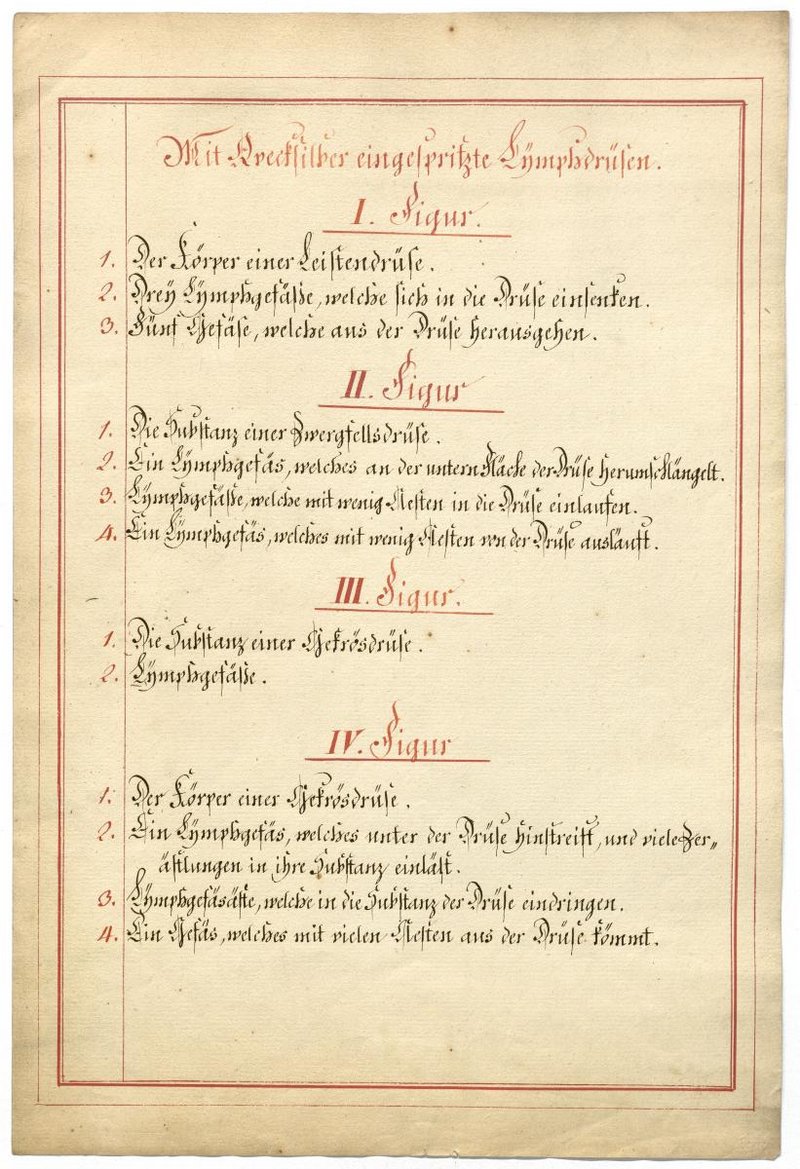 Mit Qvecksilber eingespritzte Lÿmphdrüsen.
I. Figur.
1. Der Körper einer Leistendrüse.
2. Dreÿ Lÿmphgefäße, welche sich in die Drüse einsenken.
3. Fünf Gefäse, welche aus der Drüse herausgehen.
II. Figur
1. Die Substanz einer Zwergfellsdrüse.
2. Ein Lÿmphgefäs, welches an der untern Fläche der Drüse herumschlängelt.
3. Lÿmphgefäße, welche mit wenig Aesten in die Drüse einlaufen.
4. Ein Lÿmphgefäs, welches mit wenig Aesten von der Drüse ausläuft.
III. Figur.
1. Die Substanz einer Gekrösdrüse.
2. Lÿmphgefäße.
IV. Figur
1. Der Körper einer Gekrösdrüse.
2. Ein Lÿmphgefäs, welches unter der Drüse hinstreift, und viele Zer„
ästlungen in ihre Substanz einläst.
3. Lÿmphgefäsäste, welche in die Substanz der Drüse eindringen.
4. Ein Gefäs, welches mit vielen Aesten aus der Drüse kömmt.